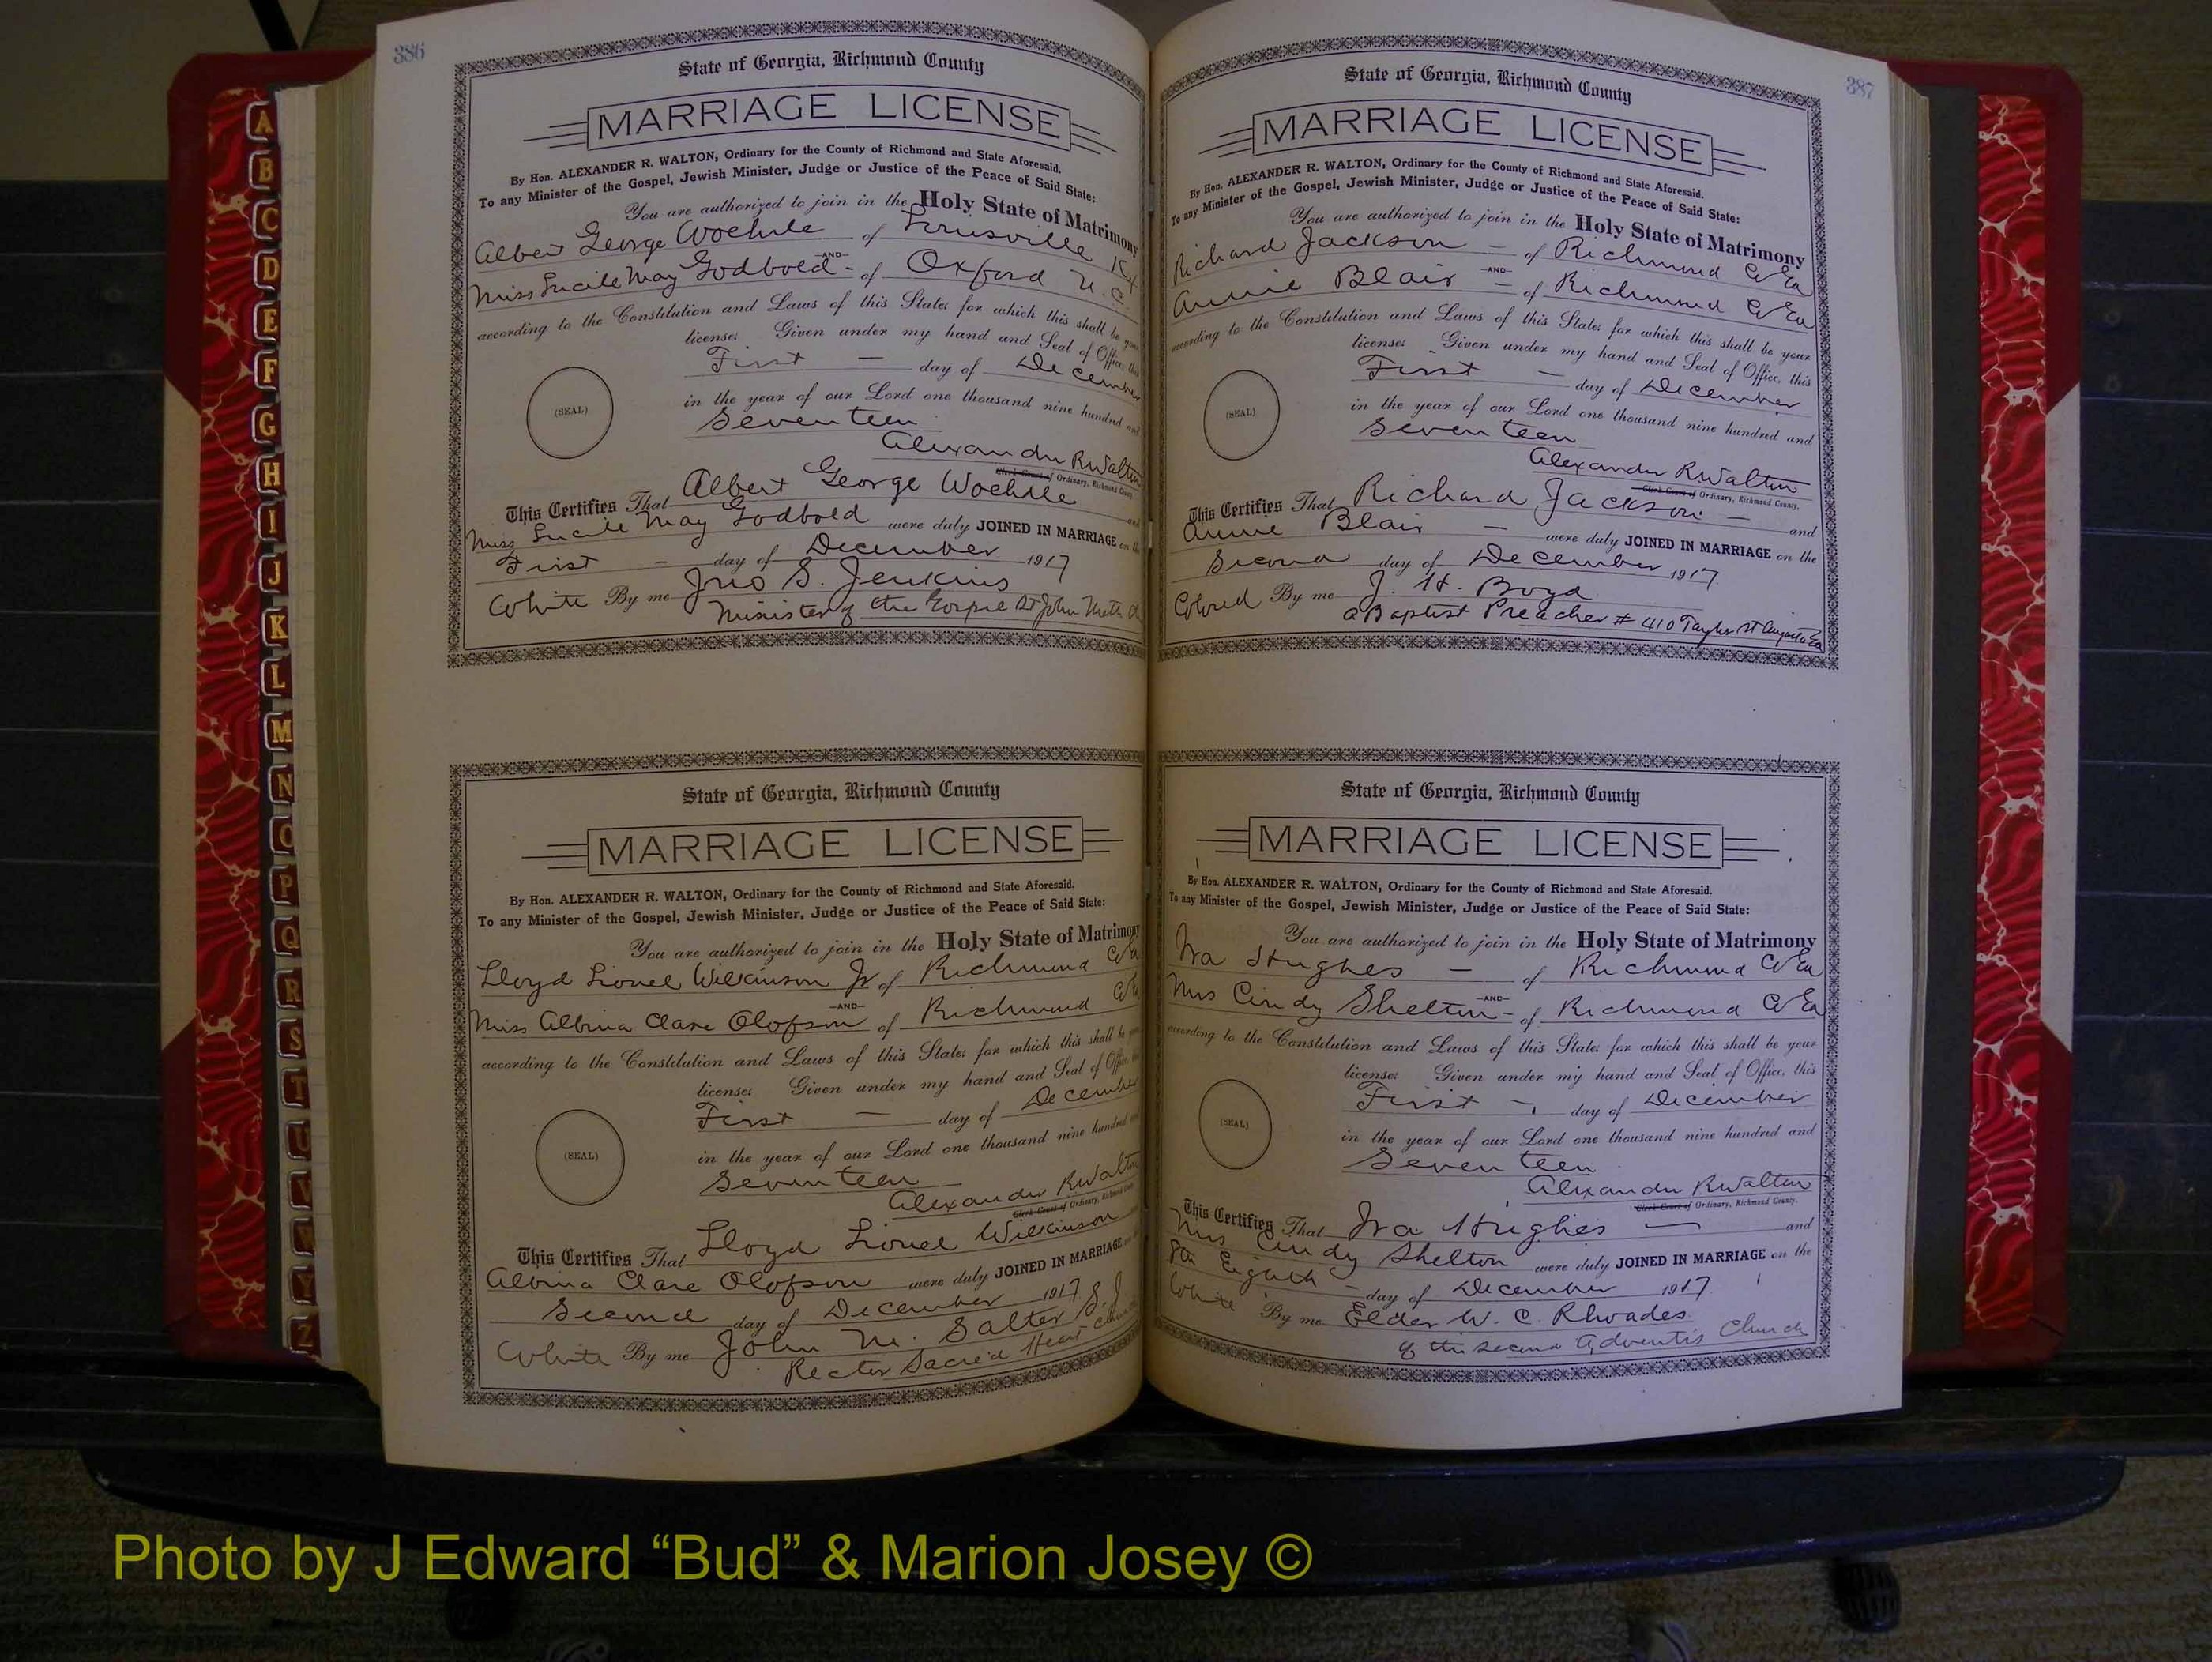 386
State of Georgia, Richmond County
MARRIAGE LICENSE
By Hon. ALEXANDER R. WALTON, Ordinary for the County of Richmond and State Aforesaid.
To any Minister of the Gospel, Jewish Minister, Judge or Justice of the Peace of Said State:
You are authorized to join in the Holy State of Matrimony
Albert George Woehrle of Louisville Ky
-AND-
Miss Lucile May Godbold - of Oxford N.C.
according to the Constitution and Laws of this State; for which this shall be your
license: Given under my hand and Seal of Office, this
First — day of December
in the year of our Lord one thousand nine hundred and
(SEAL)
Seventeen
Alexander R Walton
Clerk Court of Ordinary, Richmond County.
This Certifies That Albert George Woehrle and
Miss Lucile May Godbold were duly JOINED IN MARRIAGE on the
First - day of December 1917
White By me Jno S. Jenkins
Minister of the Gospel St John Meth
State of Georgia, Richmond County
MARRIAGE LICENSE
By Hon. ALEXANDER R. WALTON, Ordinary for the County of Richmond and State Aforesaid.
To any Minister of the Gospel, Jewish Minister, Judge or Justice of the Peace of Said State:
You are authorized to join in the Holy State of Matrimony
Lloyd Lionel Wilkinson Jr of Richmond Co Ga
-AND-
Miss Albina Clare Olofson of Richmond Co Ga
according to the Constitution and Laws of this State; for which this shall be your
license: Given under my hand and Seal of Office, this
First — day of December
in the year of our Lord one thousand nine hundred and
(SEAL)
Seventeen
Alexander R Walton
Clerk Court of Ordinary, Richmond County.
This Certifies That Lloyd Lionel Wilkinson
Albina Clare Olofson were duly JOINED IN MARRIAGE on
Second day of December 1917
White By me John M. Salter S.J
Rector Sacred Heart Church
387
State of Georgia, Richmond County
MARRIAGE LICENSE
By Hon. ALEXANDER R. WALTON, Ordinary for the County of Richmond and State Aforesaid.
To any Minister of the Gospel, Jewish Minister, Judge or Justice of the Peace of Said State:
You are authorized to join in the Holy State of Matrimony
Richard Jackson - of Richmond Co Ga
-AND-
Annie Blair - of Richmond Co Ga
according to the Constitution and Laws of this State; for which this shall be your
license: Given under my hand and Seal of Office, this
First - day of December
in the year of our Lord one thousand nine hundred and
(SEAL)
Seventeen
Alexander R Walton
Clerk Court of Ordinary, Richmond County.
This Certifies That Richard Jackson - and
Annie Blair - were duly JOINED IN MARRIAGE on the
Second day of December 1917
Colored By me J. H. Boyd
a Baptist Preacher # 410 Taylor St Augusta Ga
State of Georgia, Richmond County
MARRIAGE LICENSE
By Hon. ALEXANDER R. WALTON, Ordinary for the County of Richmond and State Aforesaid.
To any Minister of the Gospel, Jewish Minister, Judge or Justice of the Peace of Said State:
You are authorized to join in the Holy State of Matrimony
Ira Hughes - of Richmond Co Ga
-AND-
Mrs Cindy Shelton - of Richmond Co Ga
according to the Constitution and Laws of this State; for which this shall be your
license: Given under my hand and Seal of Office, this
First - day of December
in the year of our Lord one thousand nine hundred and
(SEAL)
Seventeen
Alexander R Walton
Clerk Court of Ordinary, Richmond County.
This Certifies That Ira Hughes — and
Mrs Cindy Shelton were duly JOINED IN MARRIAGE on the
8th Eighth - day of December 1917
White By me Elder W. C. Rhoades
of the second Adventis Church
A
B
C
D
E
F
G
H
I
J
K
L
M
N
O
P
Q
R
S
T
U
V
W
Y
Z
Photo by J Edward “Bud” & Marion Josey ©